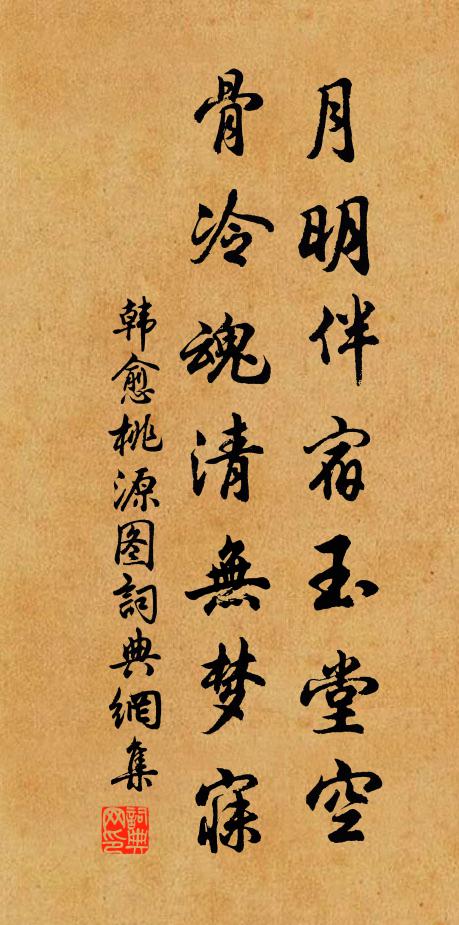 月明伴宿玉堂空
骨冷魂清無梦寐
韩愈桃源图詞典網集
詞典
网印